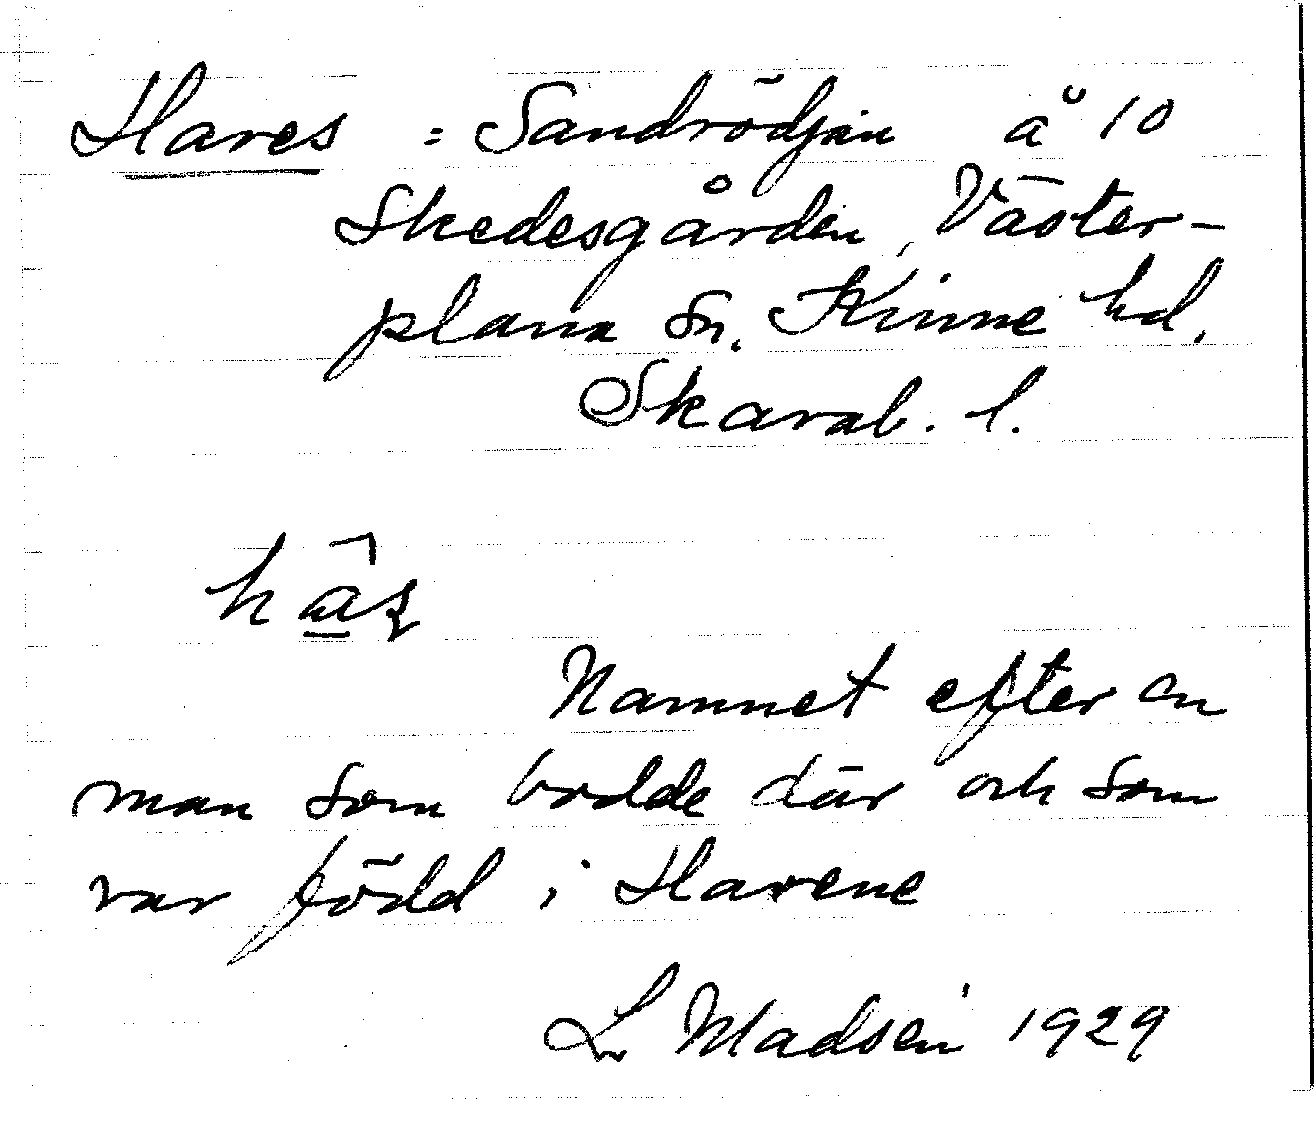 Hares = Sandrödjan å 10
Skedesgården, Väster-
plana sn. Kinne hd.
Skarab. l.
Namnet efter en
man som bodde där och som
var född i Harene
L Madsen 1929